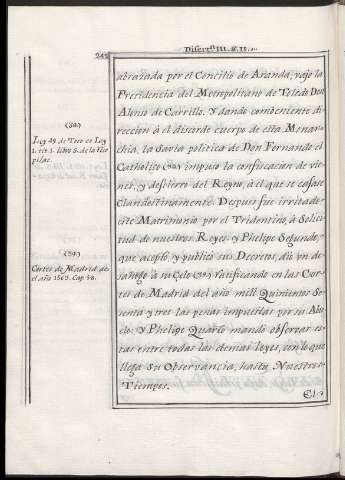 Disert.ⁿ III. §. II.
242
abrazada por el Concilio de Aranda, vajo la
Presidencia del Metropolitano de Toledo Don
Alonso de Carrillo. Y dando combeniente di-
reccion à el discorde cuerpo de esta Monar-
chia, la Savia politica de Don Fernando el
Catholico (50) impuso la confiscacion de vie-
nes, y destierro del Reyno, à el que se casase
Clandestinamente. Despues fue irritado
este Matrimonio por el Tridentino, à Solici-
tud de nuestros Reyes; y Phelipe Segundo,
que acepto, y publicò sus Decretos, dio un de-
sahogo à su Celo (51) ratificando en las Cor-
tes de Madrid del año mill Quinientos Se-
senta y tres las penas impuestas por su Abu-
elo: y Phelipe Quarto mandò observar es-
tas entre todas las demas leyes, con lo que
llega su Observancia, hasta Nuestros
Tiempos.
El
(50)
Ley 49. de Toro es Ley
1. tit. 1. libro 5. de la Reco-
pilac.
(51)
Cortes de Madrid, de
el año 1563. Cap. 58.